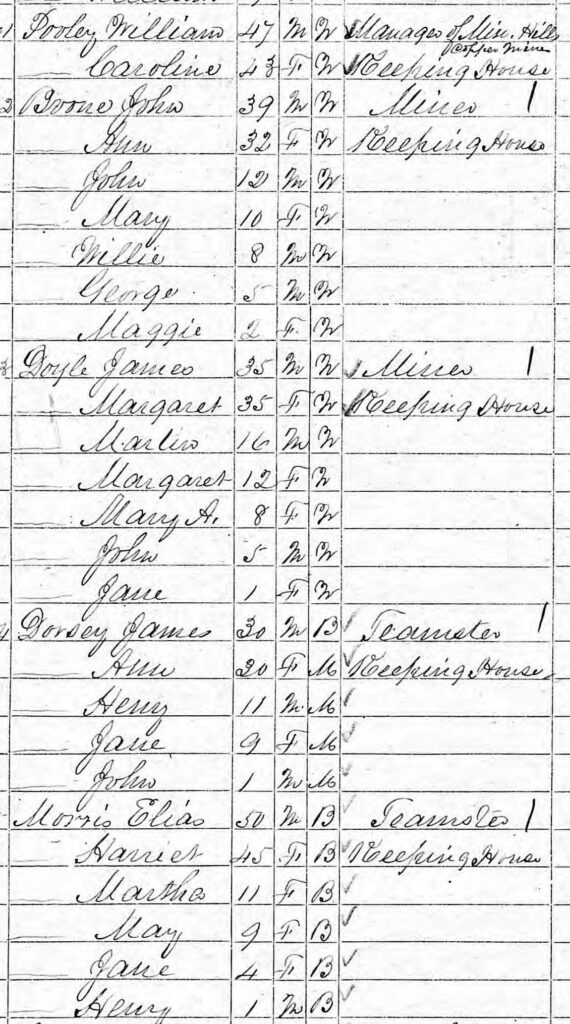 1 Pooley William 47 M W Manager of Min. Hills Copper Mine
— Caroline 43 F W Keeping House
2 Boone John 39 M W Miner 1
— Ann 32 F W Keeping House
— John 12 M W
— Mary 10 F W
— Willie 8 M W
— George 5 M W
— Maggie 2 F W
3 Doyle James 35 M W Miner 1
— Margaret 35 F W Keeping House
— Martin 16 M W
— Margaret 12 F W
— Mary A. 8 F W
— John 5 M W
— Jane 1 F W
4 Dorsey James 30 M B Teamster 1
— Ann 30 F M Keeping House
— Henry 11 M M
— Jane 9 F M
— John 1 M M
Morris Elias 50 M B Teamster 1
— Harriet 45 F B Keeping House
— Martha 11 F B
— May 9 F B
— Jane 4 F B
— Henry 1 M B